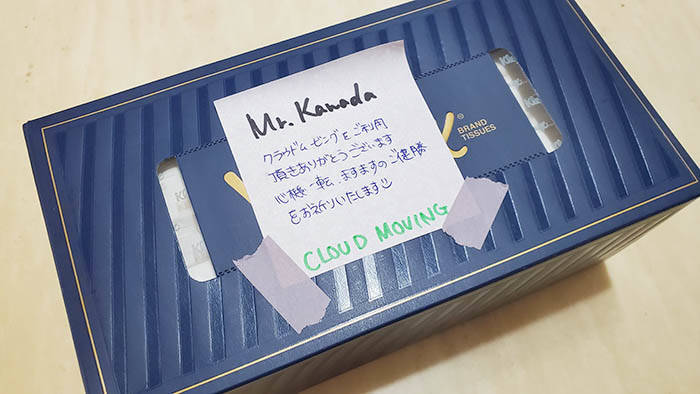 Mr. Kamada
クラウドムービングをご利用
頂きありがとうございます
心機一転、ますますのご健勝
をお祈りいたします
CLOUD MOVING
®
BRAND
TISSUES